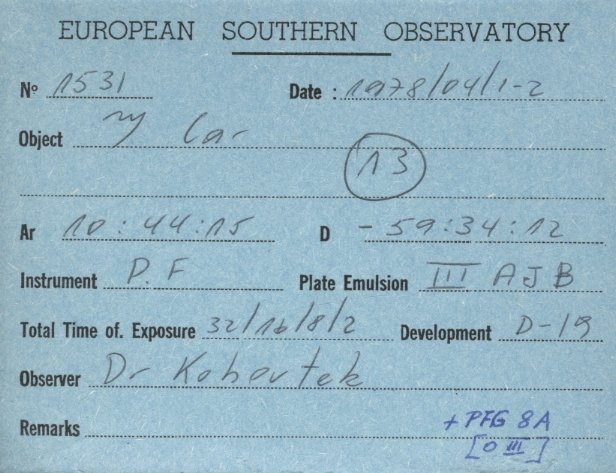 EUROPEAN SOUTHERN OBSERVATORY
Nº 1531 Date : 1978/04/1-2
Object η Car
13
Ar 10:44:15 D -59:34:12
Instrument P.F Plate Emulsion III AJB
Total Time of. Exposure 32/16/8/2 Development D-19
Observer Dr Kohoutek
Remarks + PFG 8A
[O III]